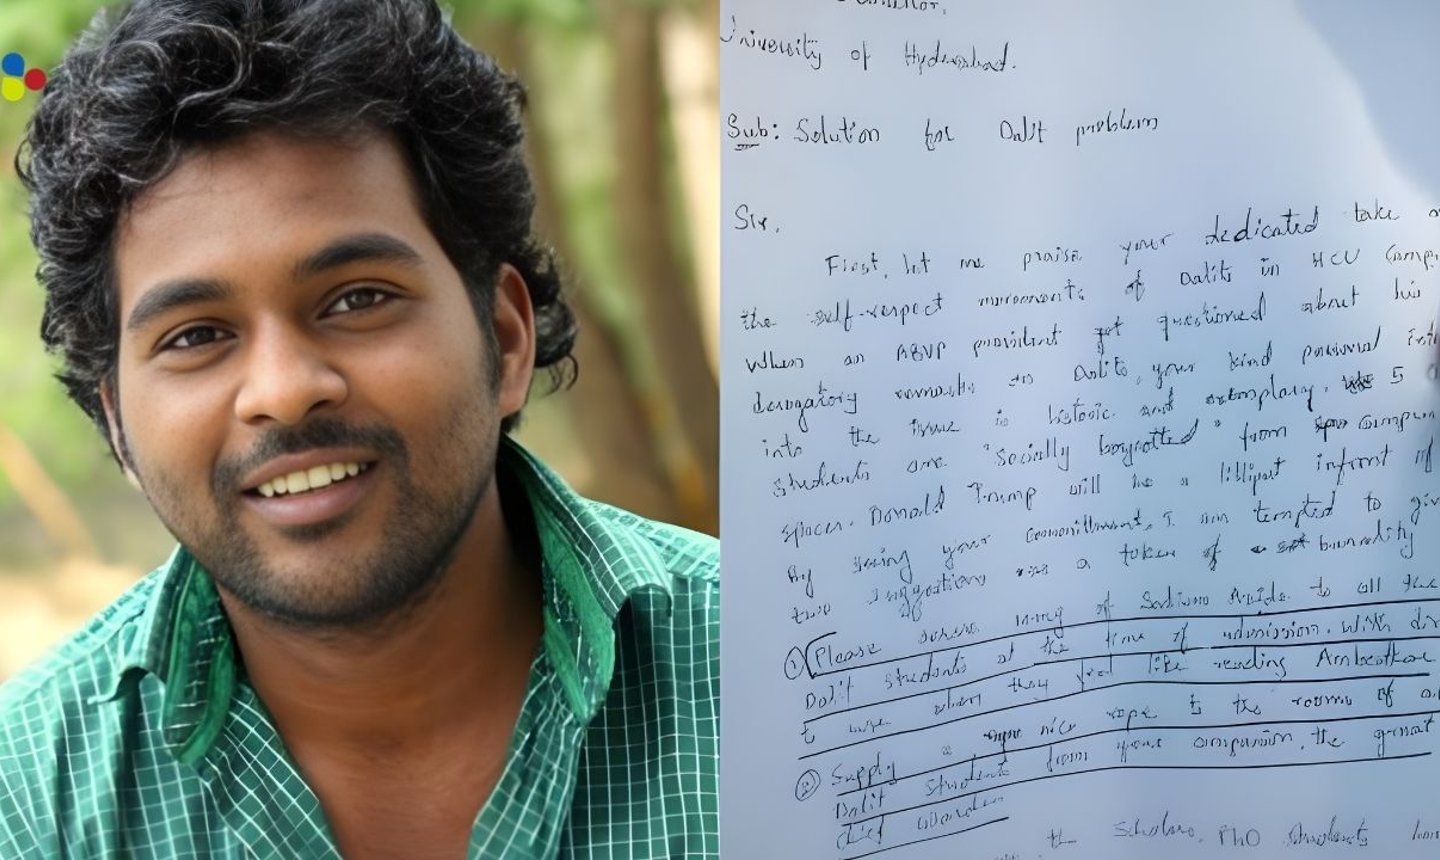 University of Hyderabad.
Sub: Solution for Dalit problem
Sir,
First, let me praise your dedicated take
the self-respect movements of Dalits in HCU
When an ABVP president got questioned about his
derogatory remarks on Dalits, your kind personal
into the issue is historic and exemplary. 5
students are "Socially boycotted" from
spaces. Donald Trump will be a lilliput infront of
By seeing your commitment, I am tempted to
two suggestions as a token of banality
① Please serve 10mg of Sodium Azide to all the
Dalit students at the time of admission. With
to use when they feel like reading Ambedkar
② Supply a nice rope to the rooms of
Dalit students from your companion, the great
chief warden
the scholars, PhD students